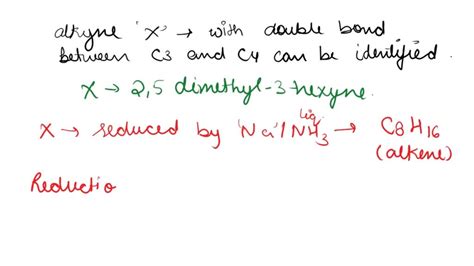 alkyne 'X' → with double bond
between C3 and C4 can be identified.
X → 2,5 dimethyl-3-hexyne.
X → reduced by 'Na'/NH3 liq. → C8H16
(alkene)
Reductio